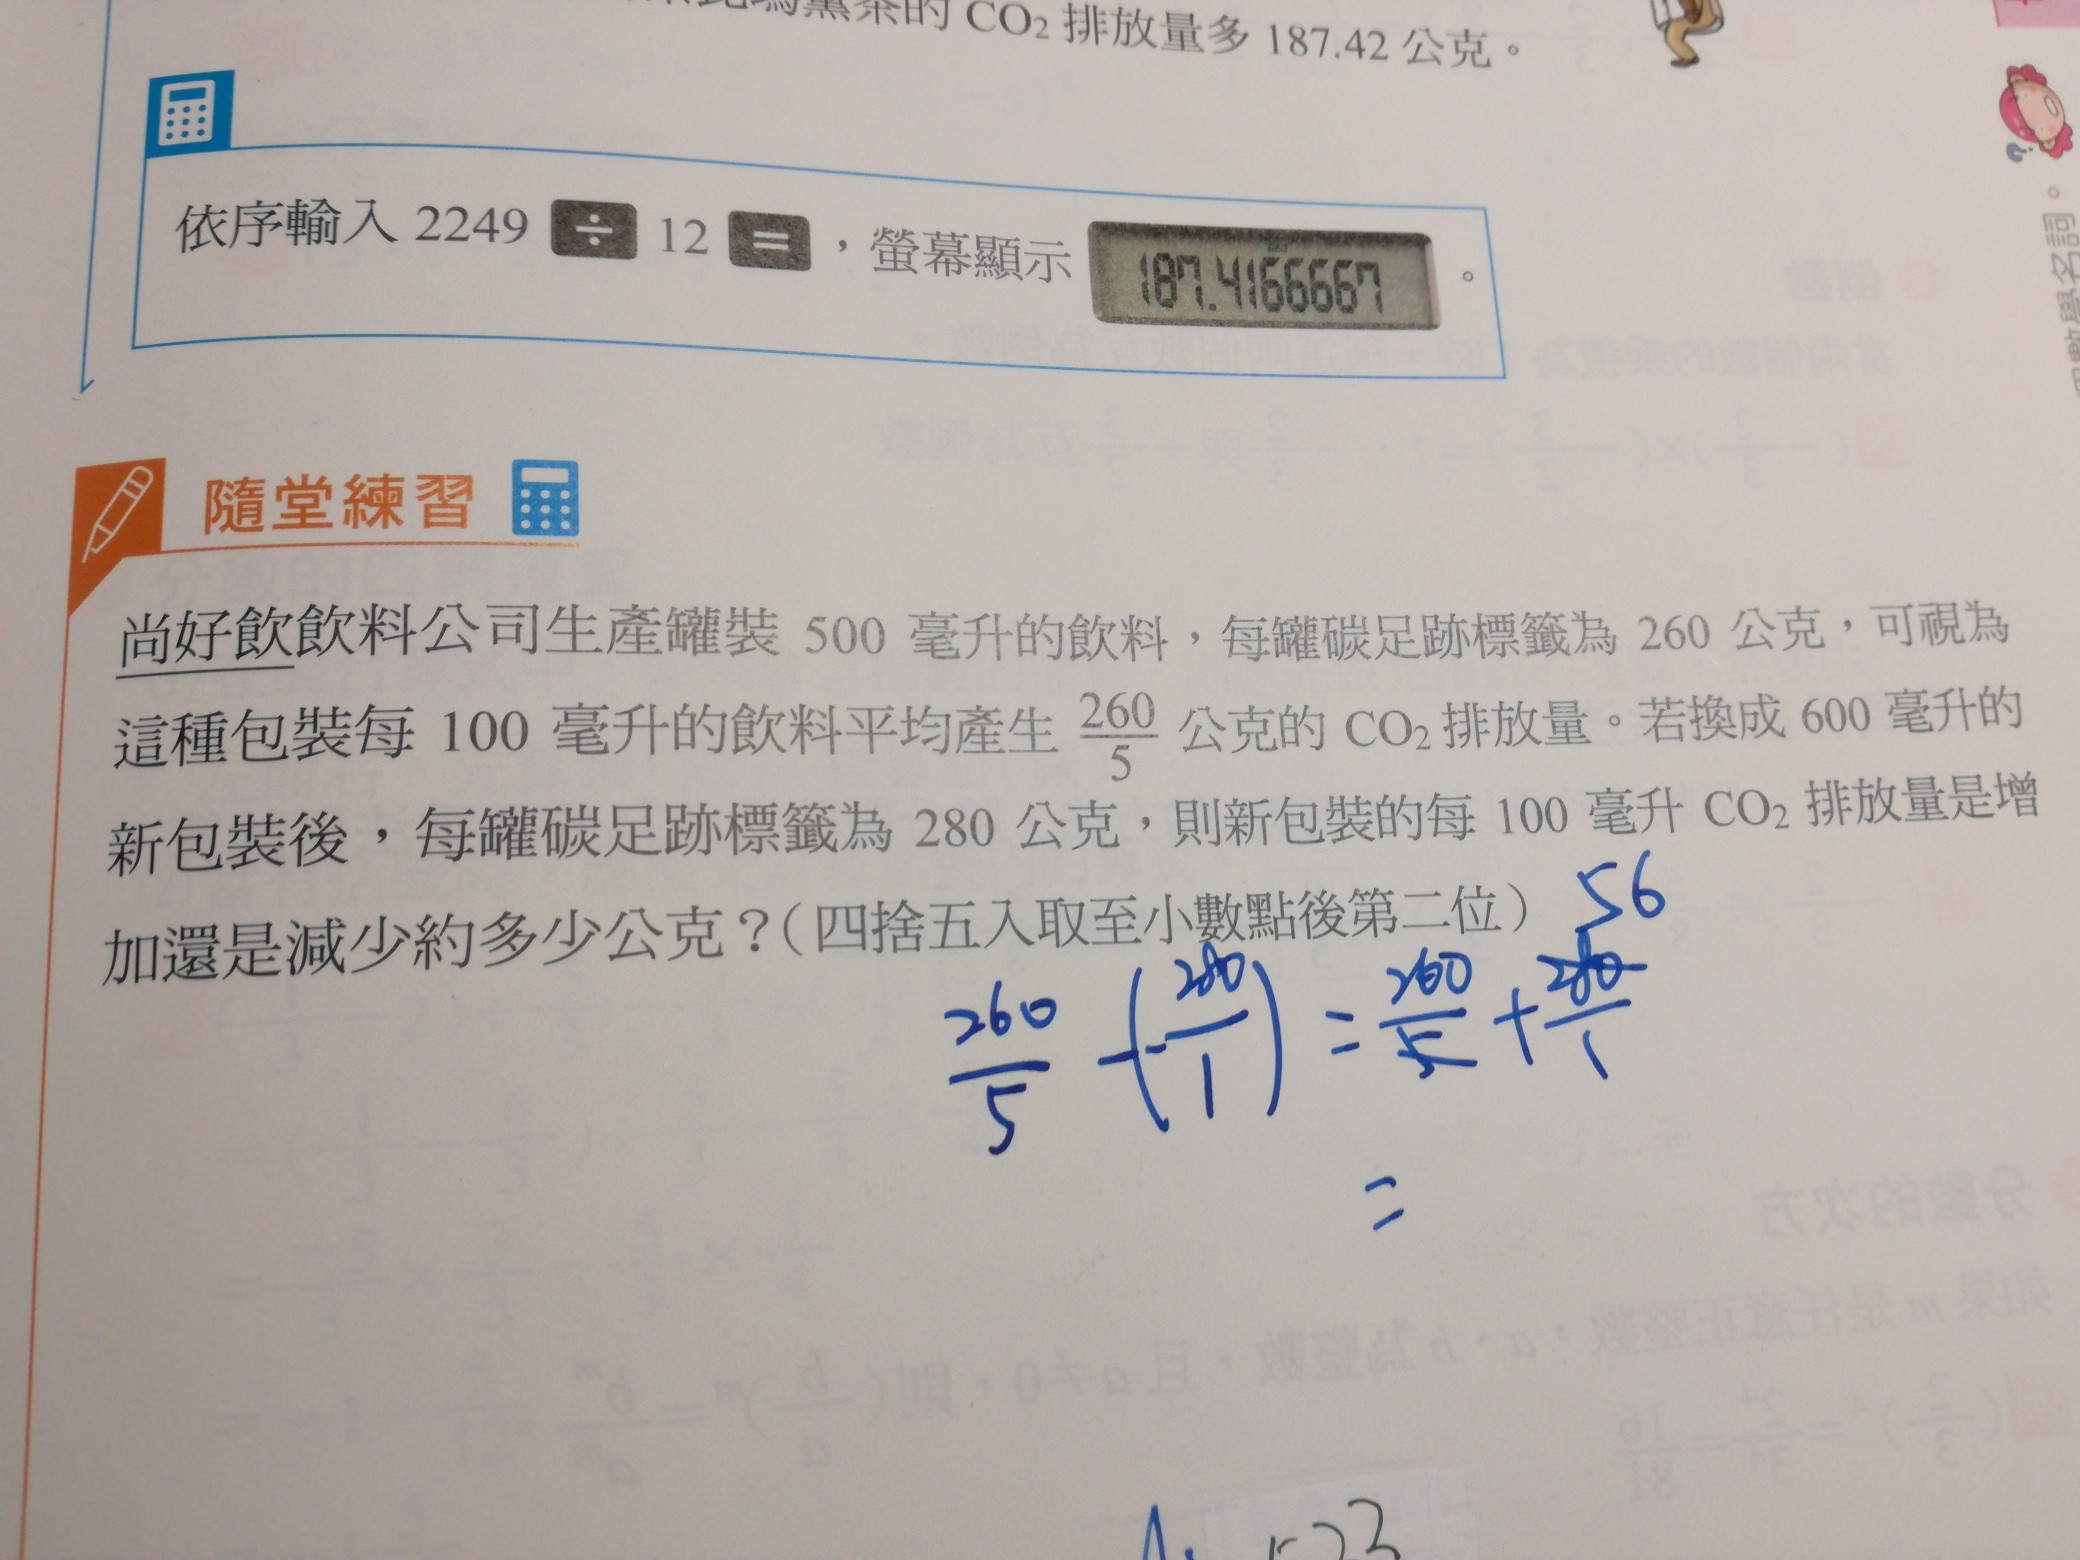 的 CO₂ 排放量多 187.42 公克。
依序輸入 2249 ÷ 12 = ,螢幕顯示 187.4166667 。
隨堂練習
尚好飲飲料公司生產罐裝 500 毫升的飲料,每罐碳足跡標籤為 260 公克,可視為
這種包裝每 100 毫升的飲料平均產生 260/5 公克的 CO₂ 排放量。若換成 600 毫升的
新包裝後,每罐碳足跡標籤為 280 公克,則新包裝的每 100 毫升 CO₂ 排放量是增
加還是減少約多少公克?(四捨五入取至小數點後第二位)
56
260/5 - (-280/1) = 260/5 + 280/1
=
數學名詞。